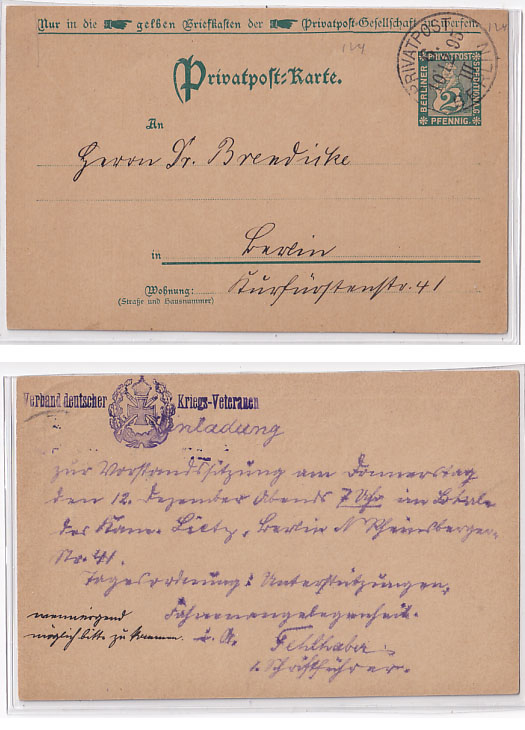 Nur in die gelben Briefkasten der Privatpost-Gesellschaft zu werfen.
124
124
Privatpost-Karte.
PRIVATPOST
BERLINER PRIVATPOST SPEDITION A.G.
2
PFENNIG
An
Herrn Dr. Brendicke
in Berlin
Wohnung: Kurfürstenstr. 41
(Straße und Hausnummer)
Verband deutscher Kriegs-Veteranen
Einladung
zur Vorstandssitzung am Donnerstag
den 12. Dezember Abends 7 Uhr im Lokale
des Kam. Lietz, Berlin N Rheinsberger-
str. 41.
Tagesordnung: Unterstützungen,
Fahnenangelegenheit.
u. A.
wenn irgend
möglich bitte zu kommen.
Fehlhaber
1. Schriftführer.